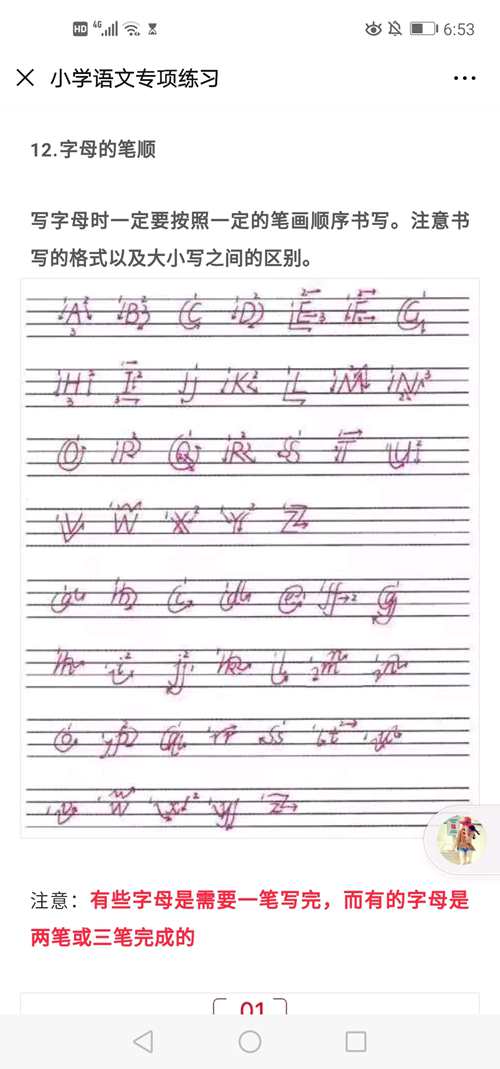 HD 4G 6:53
小学语文专项练习
12.字母的笔顺
写字母时一定要按照一定的笔画顺序书写。注意书
写的格式以及大小写之间的区别。
A B C D E F G
H I J K L M N
O P Q R S T U
V W X Y Z
a b c d e f g
h i j k l m n
o p q r s t u
v w x y z
注意：有些字母是需要一笔写完，而有的字母是
两笔或三笔完成的
01